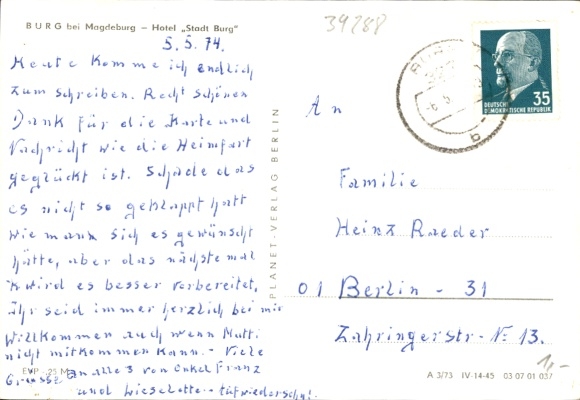 BURG bei Magdeburg – Hotel „Stadt Burg"
39288
5.5.74.
Heute komme ich endlich
zum schreiben. Recht schönen
Dank für die Karte und
Nachricht wie die Heimfart
geglückt ist. Schade das
es nicht so geklappt hatt
wie mann sich es gewünscht
hätte, aber das nächste mal
wird es besser vorbereitet,
Ihr seid immer herzlich bei mir
Willkommen auch wenn Mutti
nicht mitkommen kann. - Viele
Grüsse an alle 3 von Onkel Franz
und Lieselotte - aufwiedersehn!
EVP -,25 M
PLANET-VERLAG BERLIN
DEUTSCHE
DEMOKRATISCHE REPUBLIK
35
BURG
b
An
Familie
Heinz Raeder
01 Berlin - 31
Zahringerstr - № 13.
1,-
A 3/73 IV-14-45 03 07 01 037